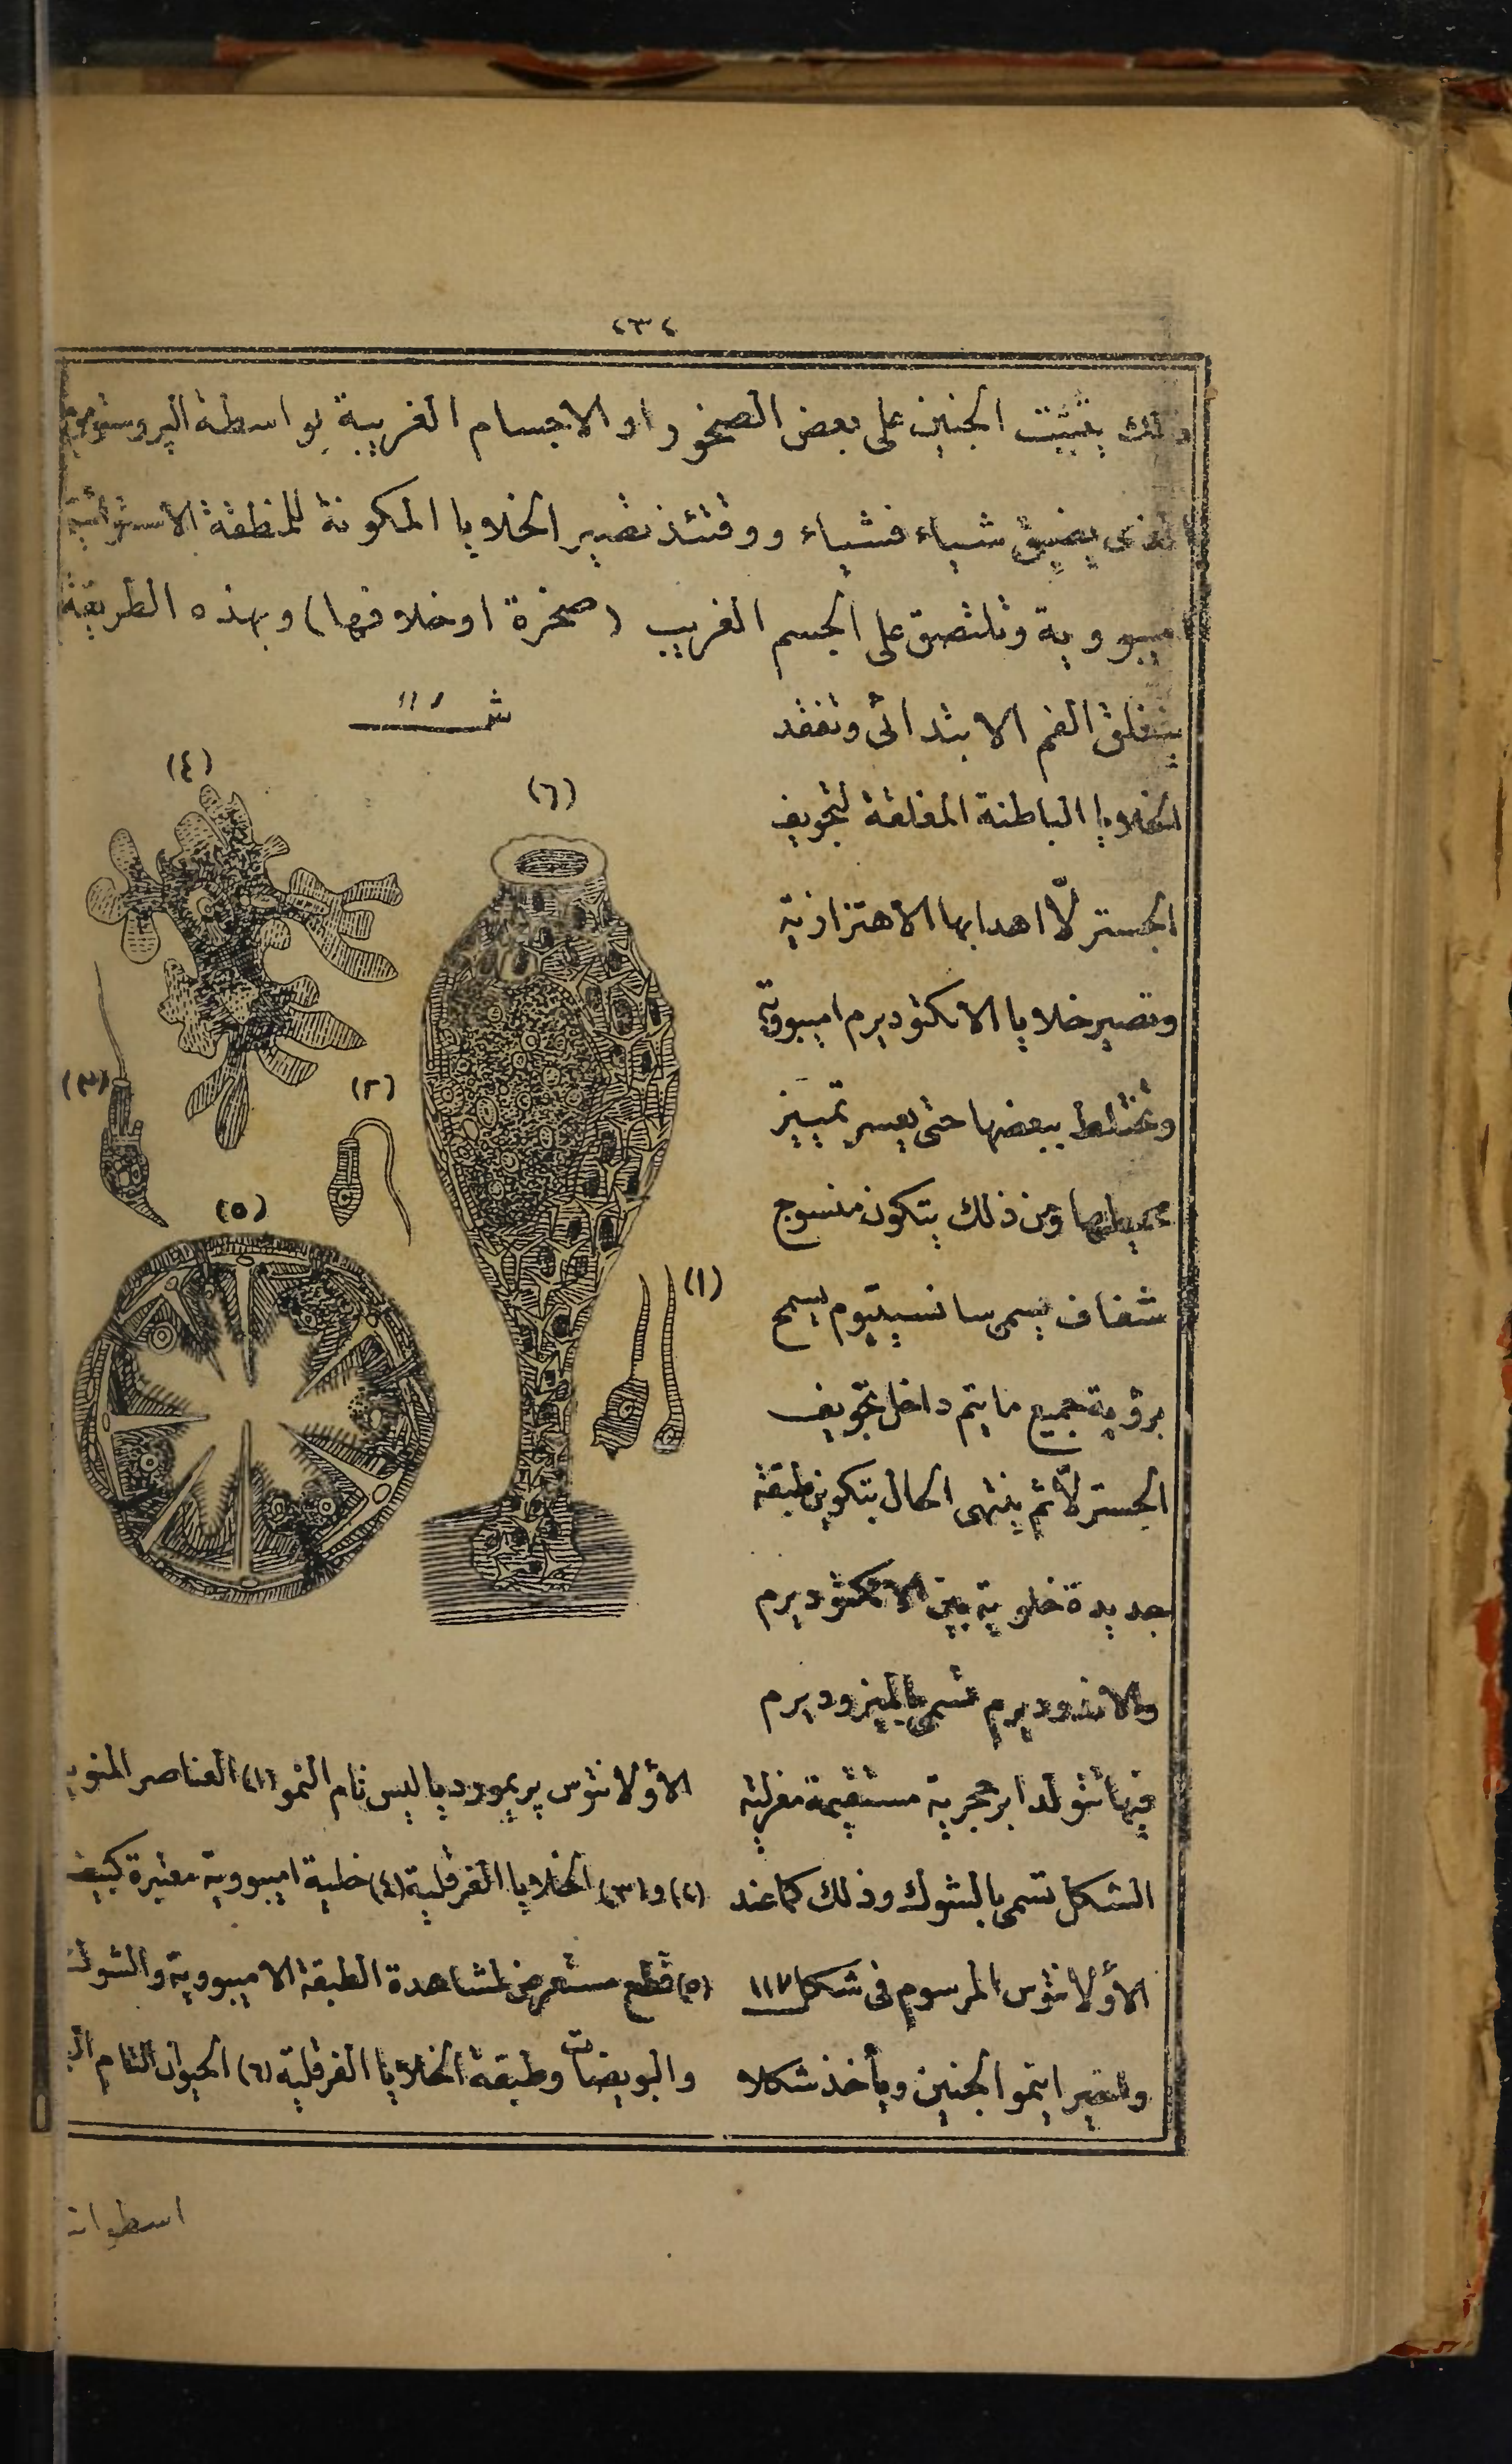 ٢٣٤
ذلك يتثبت الجنين على بعض الصخور او الاجسام الغريبة بواسطة البروستوم
الذى يضيق شياء فشياء ووقتئذ تصير الخلايا المكونة للمنطقة الاستوائية
اميبووية وتلتصق على الجسم الغريب (صخرة او خلافها) وبهذه الطريقة
ينغلق الفم الابتدائى وتفقد
الخلايا الباطنة المغلفة لتجويف
الجسترلّا اهدابها الاهتزازية
وتصير خلايا الاكتوديرم اميبووية
وتختلط ببعضها حتى يعسر تمييز
محيطها ومن ذلك يتكون منسوج
شفاف يسمى سانسيتيوم يسمح
برؤية جميع ما يتم داخل تجويف
الجسترلّا ثم ينتهى الحال بتكوين طبقة
جديدة خلوية بين الاكتوديرم
والاندوديرم تسمى بالميزوديرم
فيها تتولد ابر حجرية مستقيمة مغزلية
الشكل تسمى بالشوك وذلك كما عند
الأولانتوس المرسوم فى شكل ١١٧
واخيرا ينمو الجنين ويأخذ شكلا
شـ ١١
(٤)
(٦)
(٣)
(٢)
(٥)
(١)
الأولانتوس پريموردياليس تام النمو (١) العناصر المنوية
(٢) و(٣) الخلايا الغرقلية (٤) خلية اميبووية معتبرة كبيض
(٥) قطع مستعرض لمشاهدة الطبقة الاميبووية والشوك
والبويضات وطبقة الخلايا الغرقلية (٦) الحيوان التام